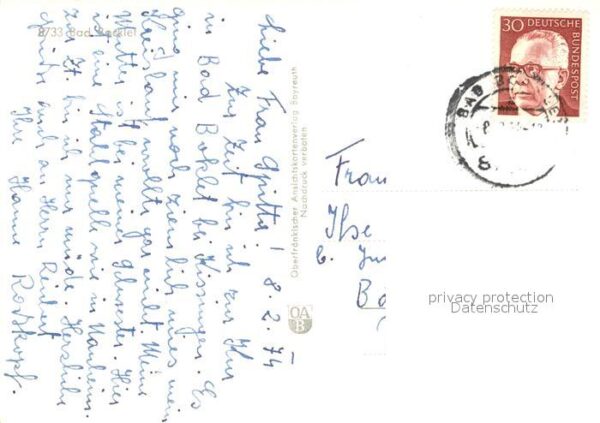 8733 Bad Bocklet
8.2.74
Liebe Frau Gpitta!
Zur Zeit bin ich zur Kur
in Bad Boklet bei Kissingen. Es
ging mir noch ziemlich mies mein
Kreislauf wollte gar nicht. Meine
Mutter ist bei meiner Schwester. Hier
ist eine Stahlquelle wie in Nauheim.
Zur Zt. bin ich nur müde. Herzliche
Grüße auch an Herrn
Ihre Hanne Rodskopf.
Oberfränkischer Ansichtskartenverlag Bayreuth
Nachdruck verboten
OA
B
30 DEUTSCHE
BUNDESPOST
BAD
Frau
Ilse
b.
privacy protection
Datenschutz